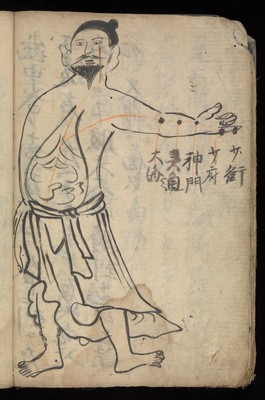 少衝
少府
神門
灵道
大海